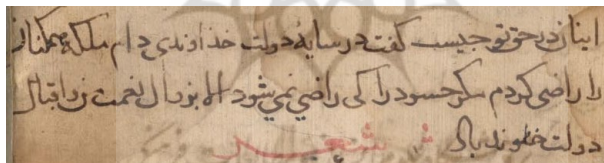 اینان در حق تو چیست کفت در سایهٔ دولت خذاوندی دام ملکه همکنان
را راضی کردم مکر حسود را کی راضی نمی شود الا بزوال نعمت من و اقبال
دولت خداوند باد شعر